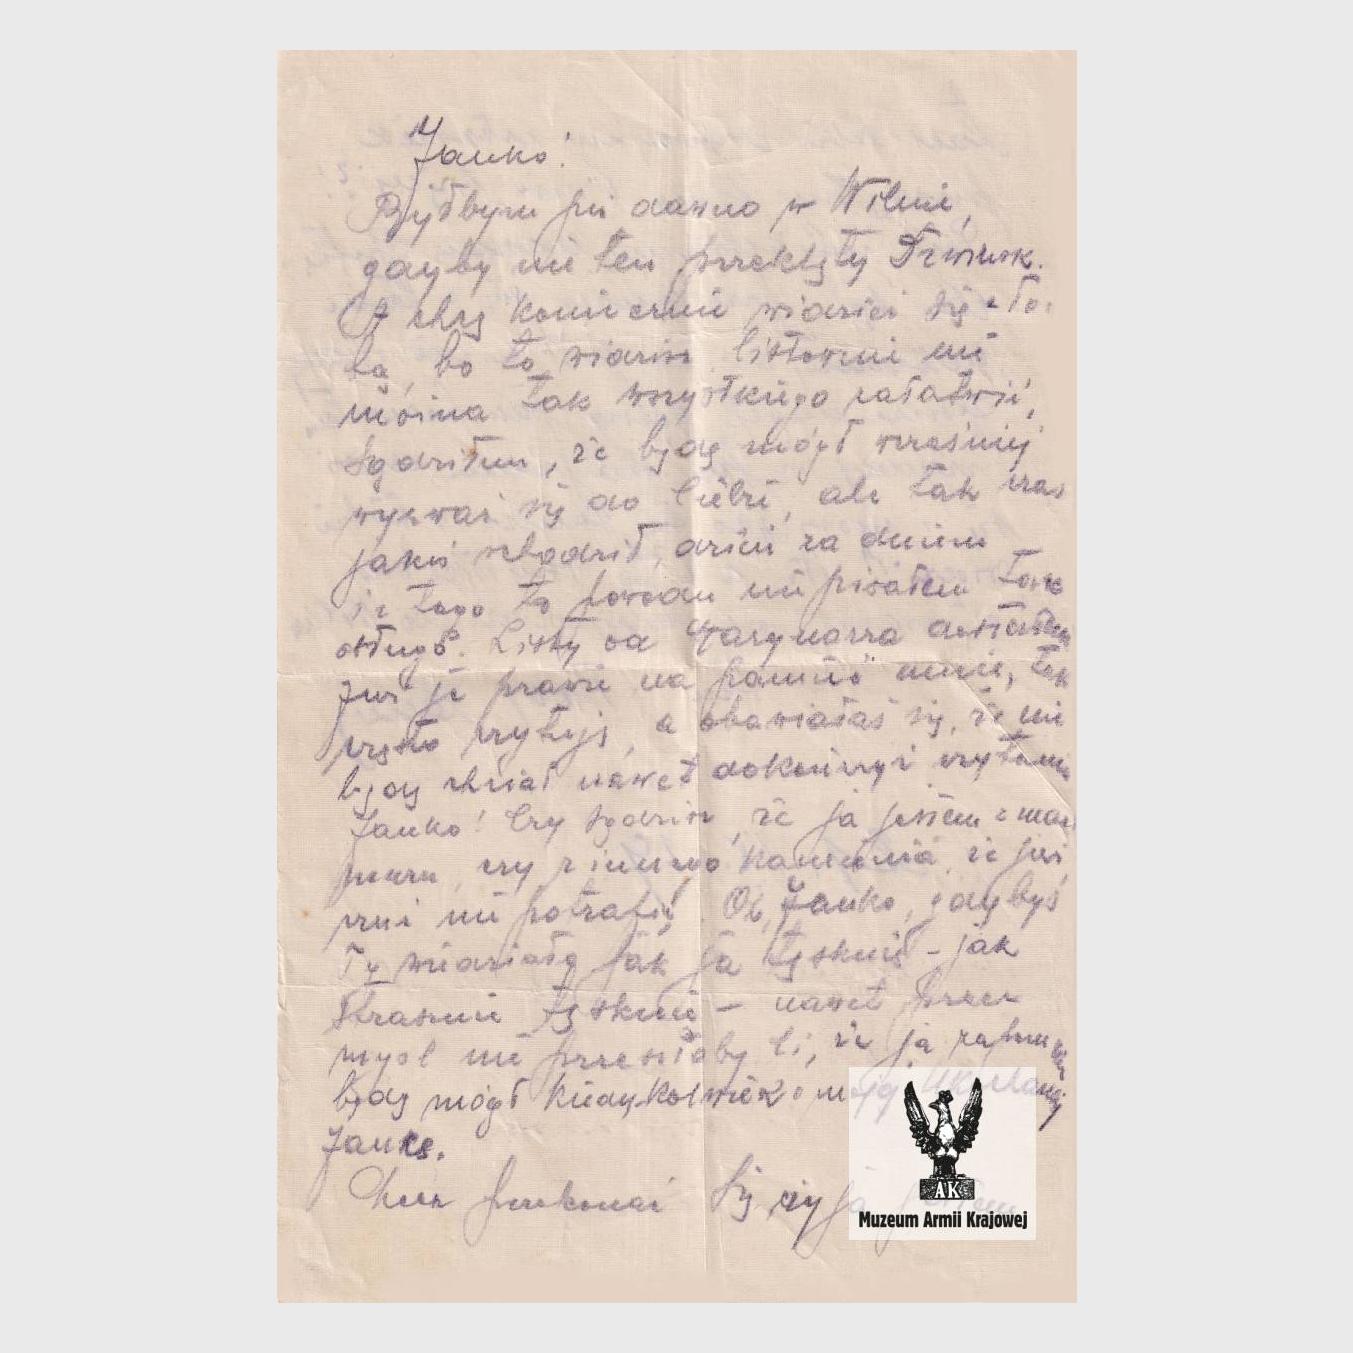 Janko!
Byłbym już dawno w Wilnie,
gdyby nie ten przeklęty
Ja chcę koniecznie widzieć się z To-
bą, bo to widzisz listownie nie
można tak wszystkiego załatwić,
Sądziłem, że będę mógł wcześniej
wyrwać się do Ciebie, ale tak czas
jakoś schodził, dzień za dniem
i z tego to powodu nie pisałem tak
długo. Listy od
Już je prawie na pamięć umiem, tak
często czytuję, a obawiałaś się, że nie
będę chciał nawet dokończyć czytania
Janko! Czy sądzisz, że ja jestem z mar
muru, czy z innego kamienia, że już
czuć nie potrafię. Oh, Janko, gdybyś
Ty wiedziała jak ja tęsknię - jak
strasznie tęsknię - nawet przez
myśl nie przeszłoby Ci, że ja
będę mógł kiedykolwiek o mojej Ukochanej
Jance.
Chcesz przekonać się, czy ja jestem
AK
Muzeum Armii Krajowej